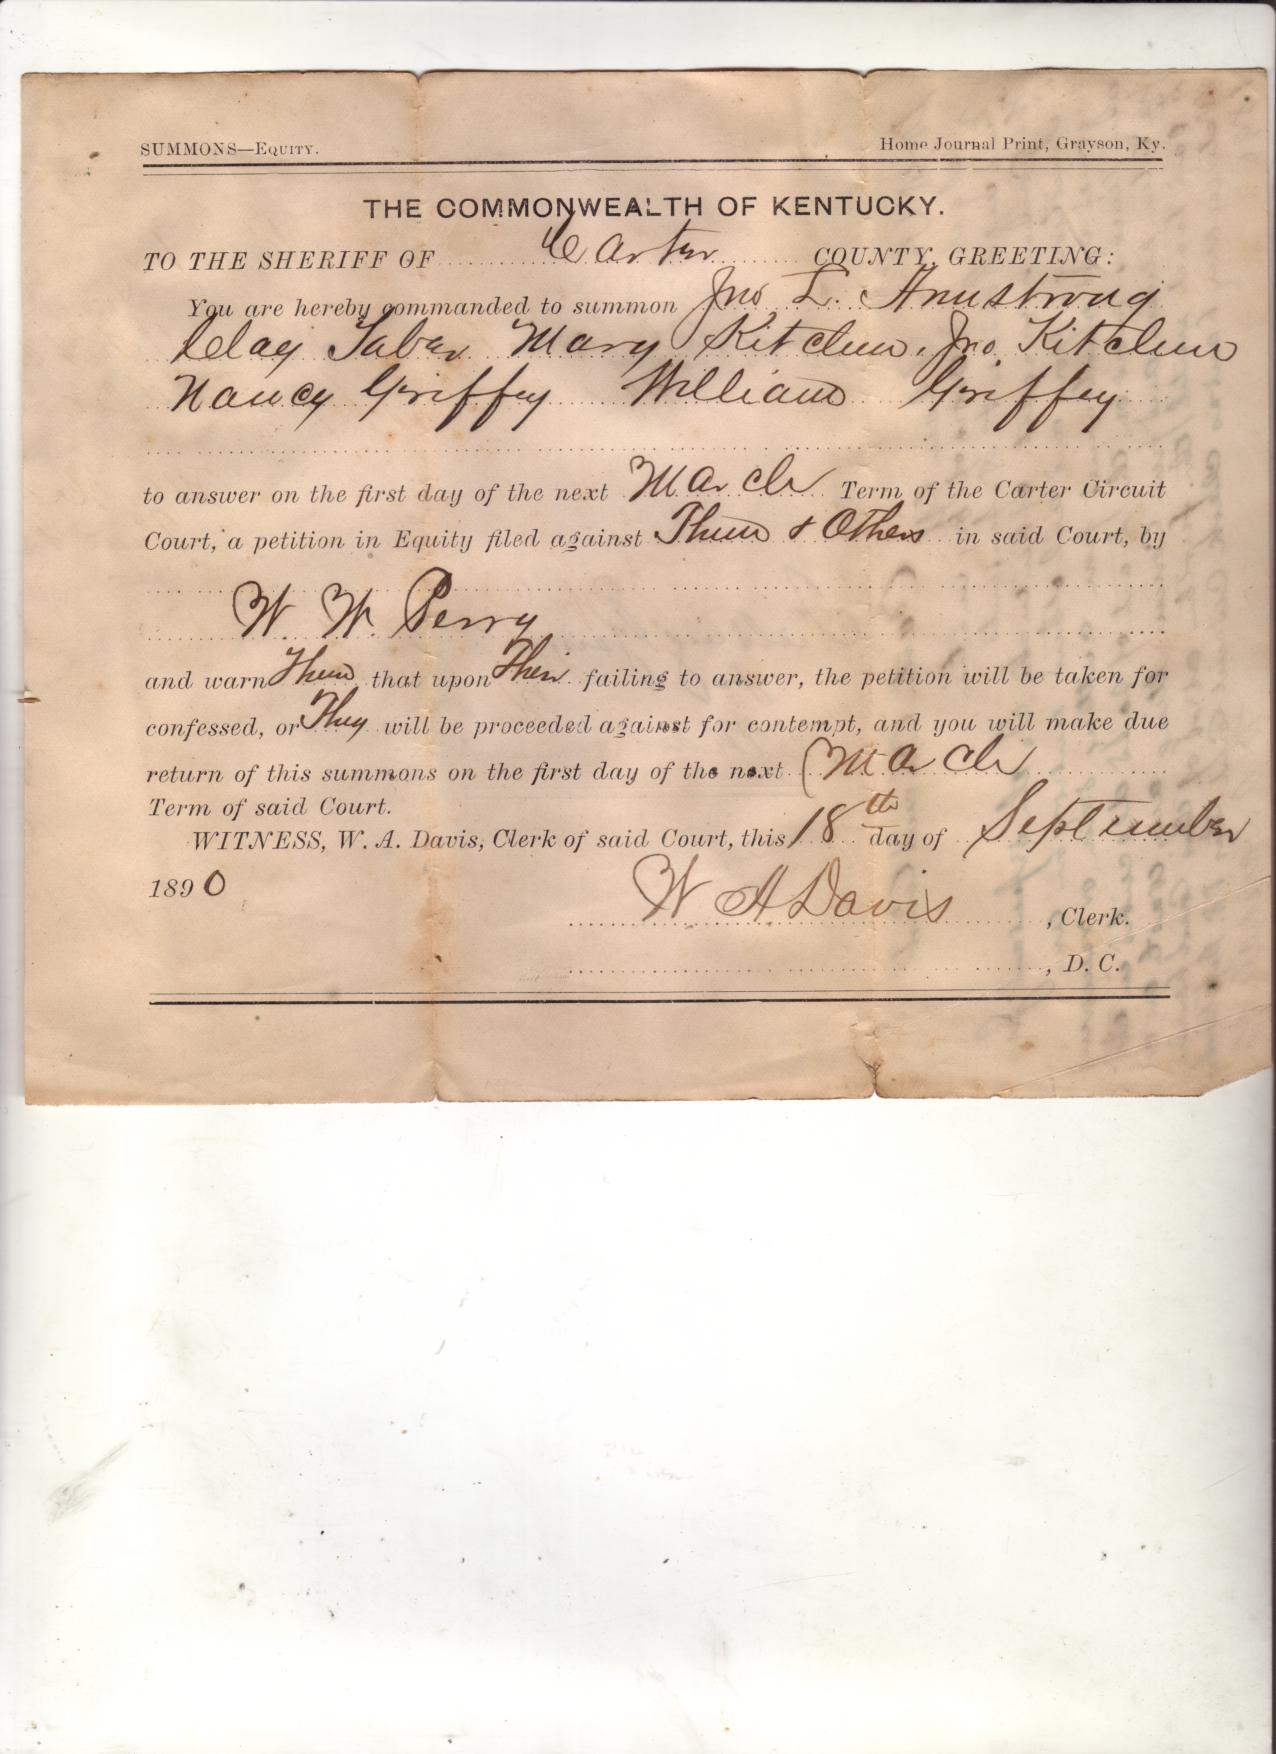 SUMMONS—EQUITY. Home Journal Print, Grayson, Ky.
THE COMMONWEALTH OF KENTUCKY.
TO THE SHERIFF OF Carter COUNTY, GREETING:
You are hereby commanded to summon Jno, L. Armstrong
Clay Taber Mary Kitchen, Jno. Kitchen
Nancy Griffey William Griffey
to answer on the first day of the next March Term of the Carter Circuit
Court, a petition in Equity filed against Them & Others in said Court, by
W. W. Perry
and warn Them that upon Their failing to answer, the petition will be taken for
confessed, or They will be proceeded against for contempt, and you will make due
return of this summons on the first day of the next March
Term of said Court.
WITNESS, W. A. Davis, Clerk of said Court, this 18th day of September
1890
W A Davis, Clerk.
, D. C.